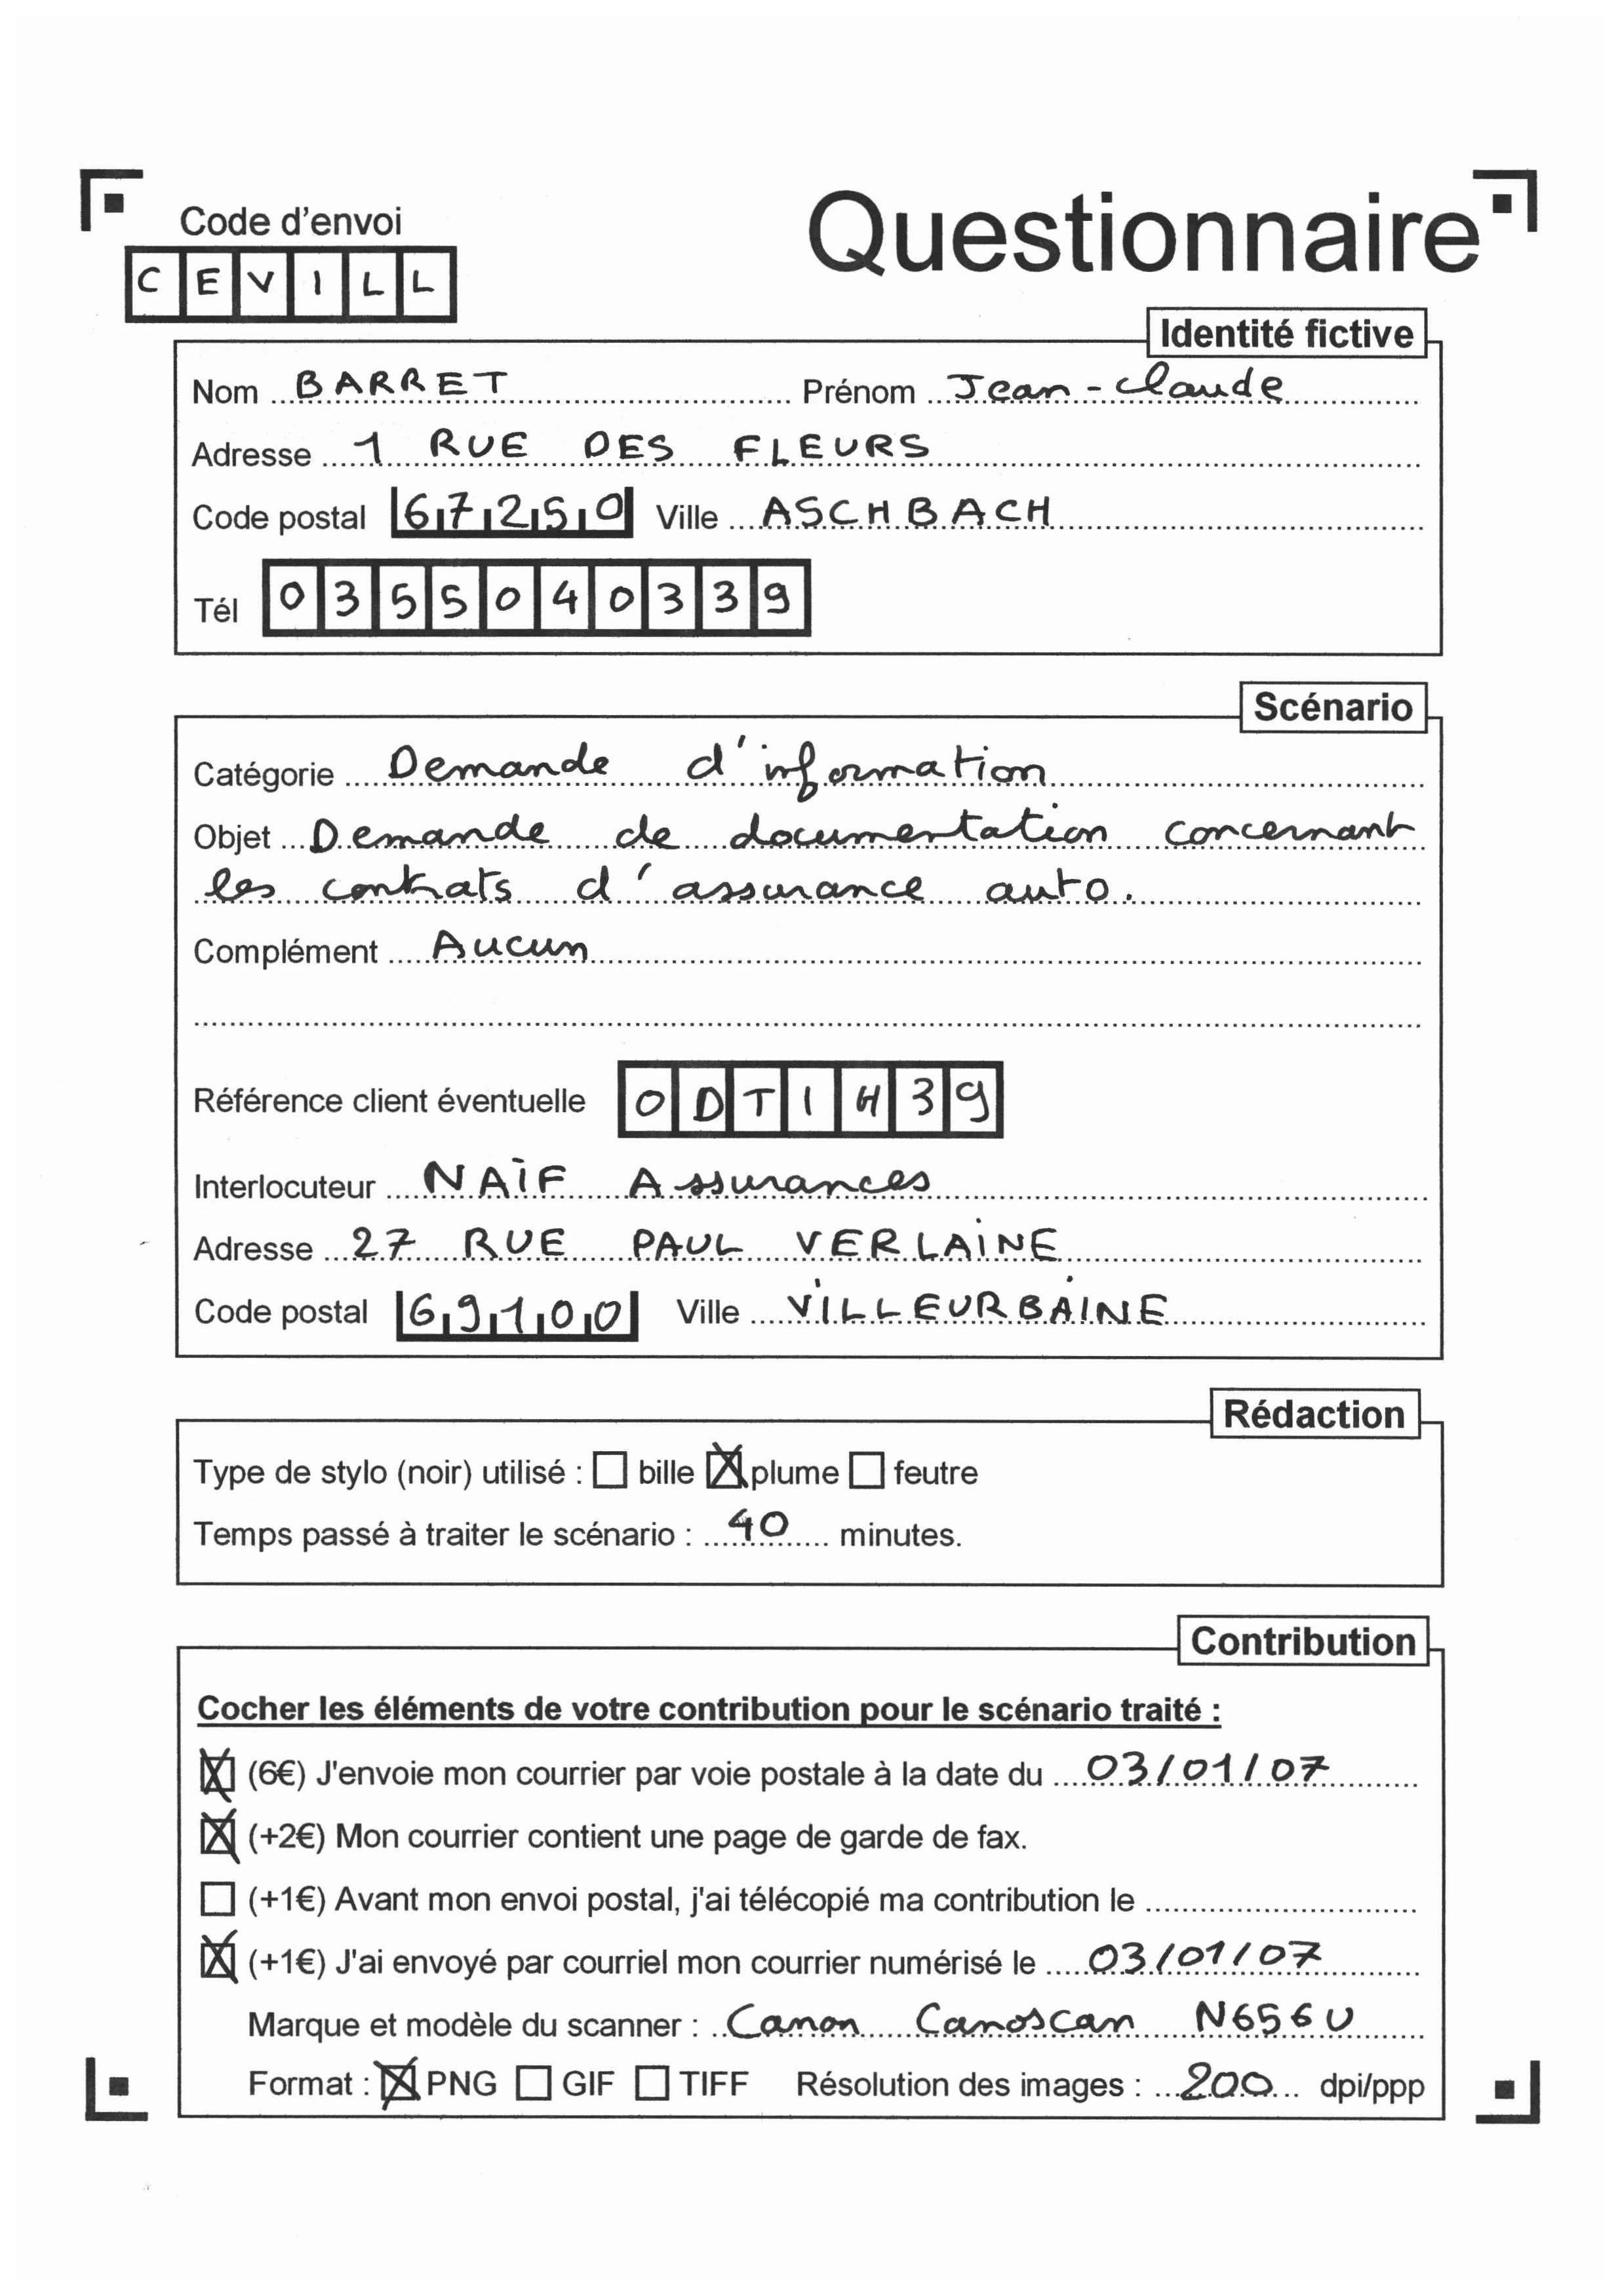 Code d'envoi
Questionnaire
C E V I L L
Identité fictive
Nom BARRET Prénom Jean-Claude
Adresse 1 RUE DES FLEURS
Code postal 67250 Ville ASCHBACH
Tél 0355040339
Scénario
Catégorie Demande d'information
Objet Demande de documentation concernant
les contrats d'assurance auto.
Complément Aucun
Référence client éventuelle ODTIH39
Interlocuteur NAÏF Assurances
Adresse 27 RUE PAUL VERLAINE
Code postal 69100 Ville VILLEURBAINE
Rédaction
Type de stylo (noir) utilisé : ☐ bille ☒ plume ☐ feutre
Temps passé à traiter le scénario : 40 minutes.
Contribution
Cocher les éléments de votre contribution pour le scénario traité :
☒ (6€) J'envoie mon courrier par voie postale à la date du 03/01/07
☒ (+2€) Mon courrier contient une page de garde de fax.
☐ (+1€) Avant mon envoi postal, j'ai télécopié ma contribution le
☒ (+1€) J'ai envoyé par courriel mon courrier numérisé le 03/01/07
Marque et modèle du scanner : Canon Canoscan N656U
Format : ☒ PNG ☐ GIF ☐ TIFF Résolution des images : 200 dpi/ppp